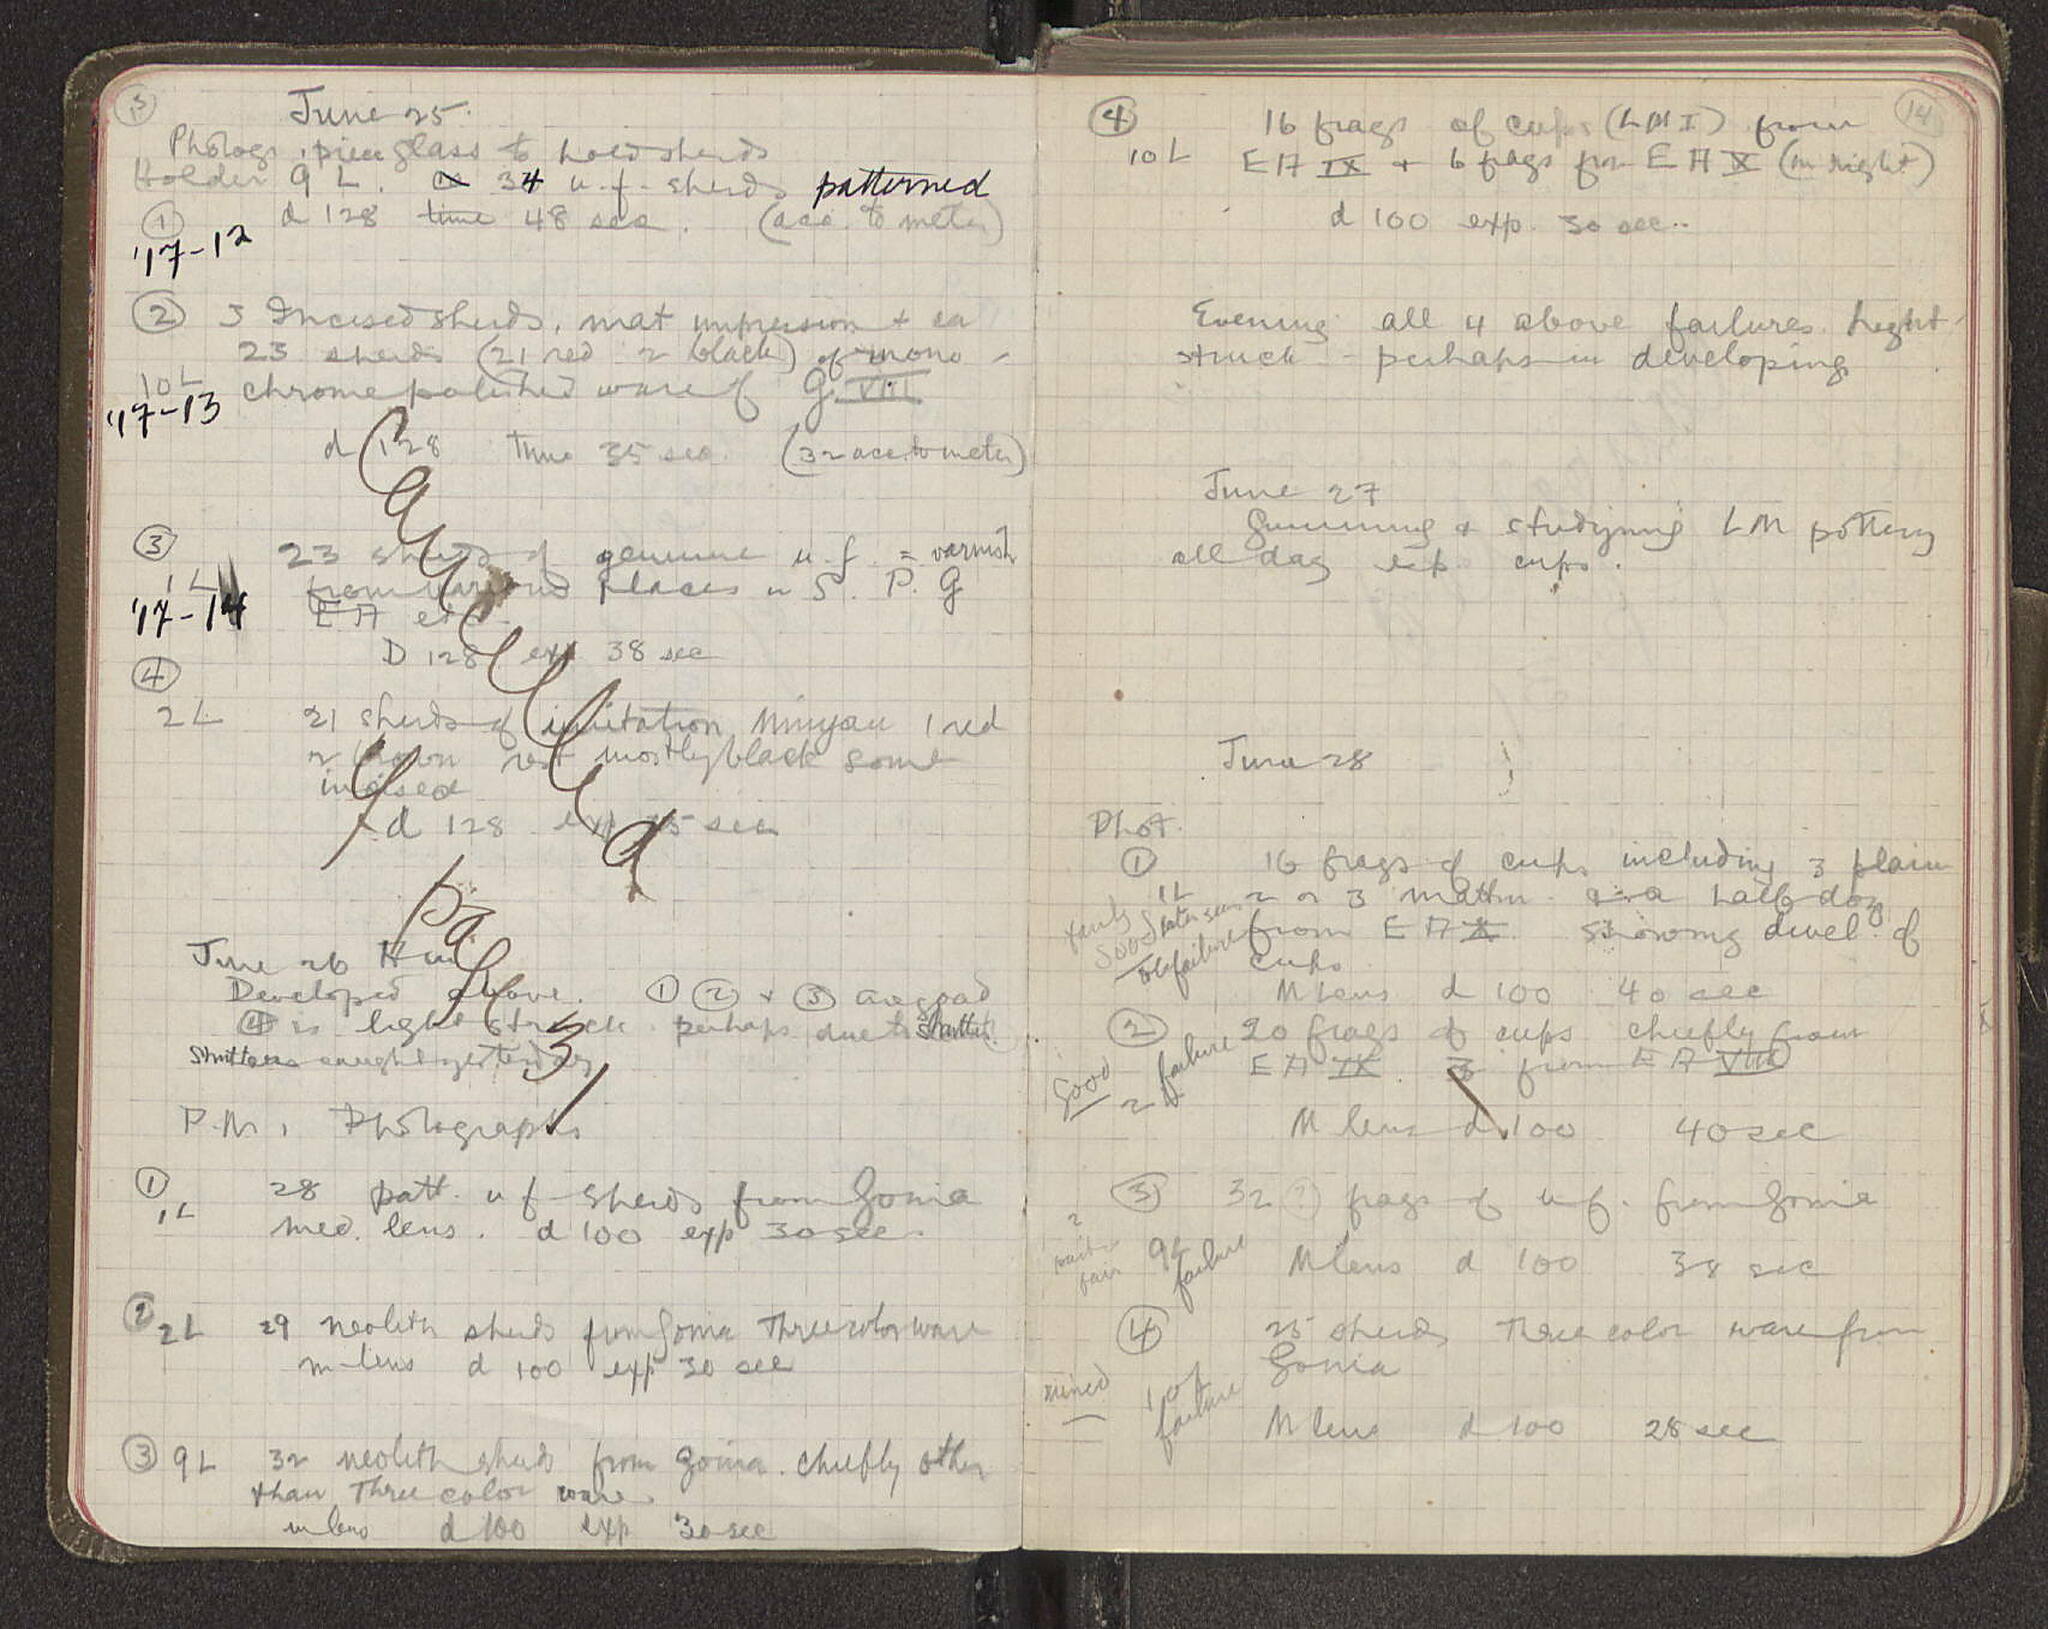 June 25.
Photogs. piece glass to hold sherds
Holder 9 L. 34 u.f. sherds patterned
① d 128 time 48 sec. (acc. to meter)
'17-12
② 3 Incised sherds, mat impression + ca
23 sherds (21 red 2 black) of mono-
10 L chrome polished ware of G VIII
'17-13
d 128 time 35 sec. (32 acc. to meter)
③ 23 sherds of genuine u.f. = varnish
1 L from various places in S. P. G
'17-14 EA etc.
D 128 exp 38 sec
④
2 L 21 sherds of imitation Minyan 1 red
2 brown rest mostly black some
incised
d 128 exp 35 sec
June 26
Developed above. ① ② + ③ are good
④ is light struck perhaps due to
Shutters caught yesterday
P.M. Photographs
① 28 patt. u f sherds from Gonia
1L med. lens. d 100 exp 30 sec.
② 2L 29 neolith sherds from Gonia Three color ware
m lens d 100 exp 30 sec
③ 9L 32 neolith sherds from Gonia. chiefly other
than Three color ware
m lens d 100 exp 30 sec
14
④ 16 frags of cups (LM I) from
10 L EA IX + 6 frags from EA X (on right)
d 100 exp. 30 sec..
Evening all 4 above failures. Light
struck - perhaps in developing
June 27
Gumming & studying LM pottery
all day esp. cups.
June 28
Phot.
① 16 frags of cups including 3 plain
1L 2 or 3 matt half doz
fairly good later seen from EA X showing devel. of
to be failure cups.
M lens d 100 40 sec
② 20 frags of cups chiefly from
good 2 failure EA IX. 3 from EA VIII
M lens d 100 40 sec
③ 32 (?) frags of u f. from Gonia
fair 9L failure M lens d 100 38 sec
④ 25 sherds Three color ware from
Gonia
ruined 10 L failure
M lens d 100 28 sec